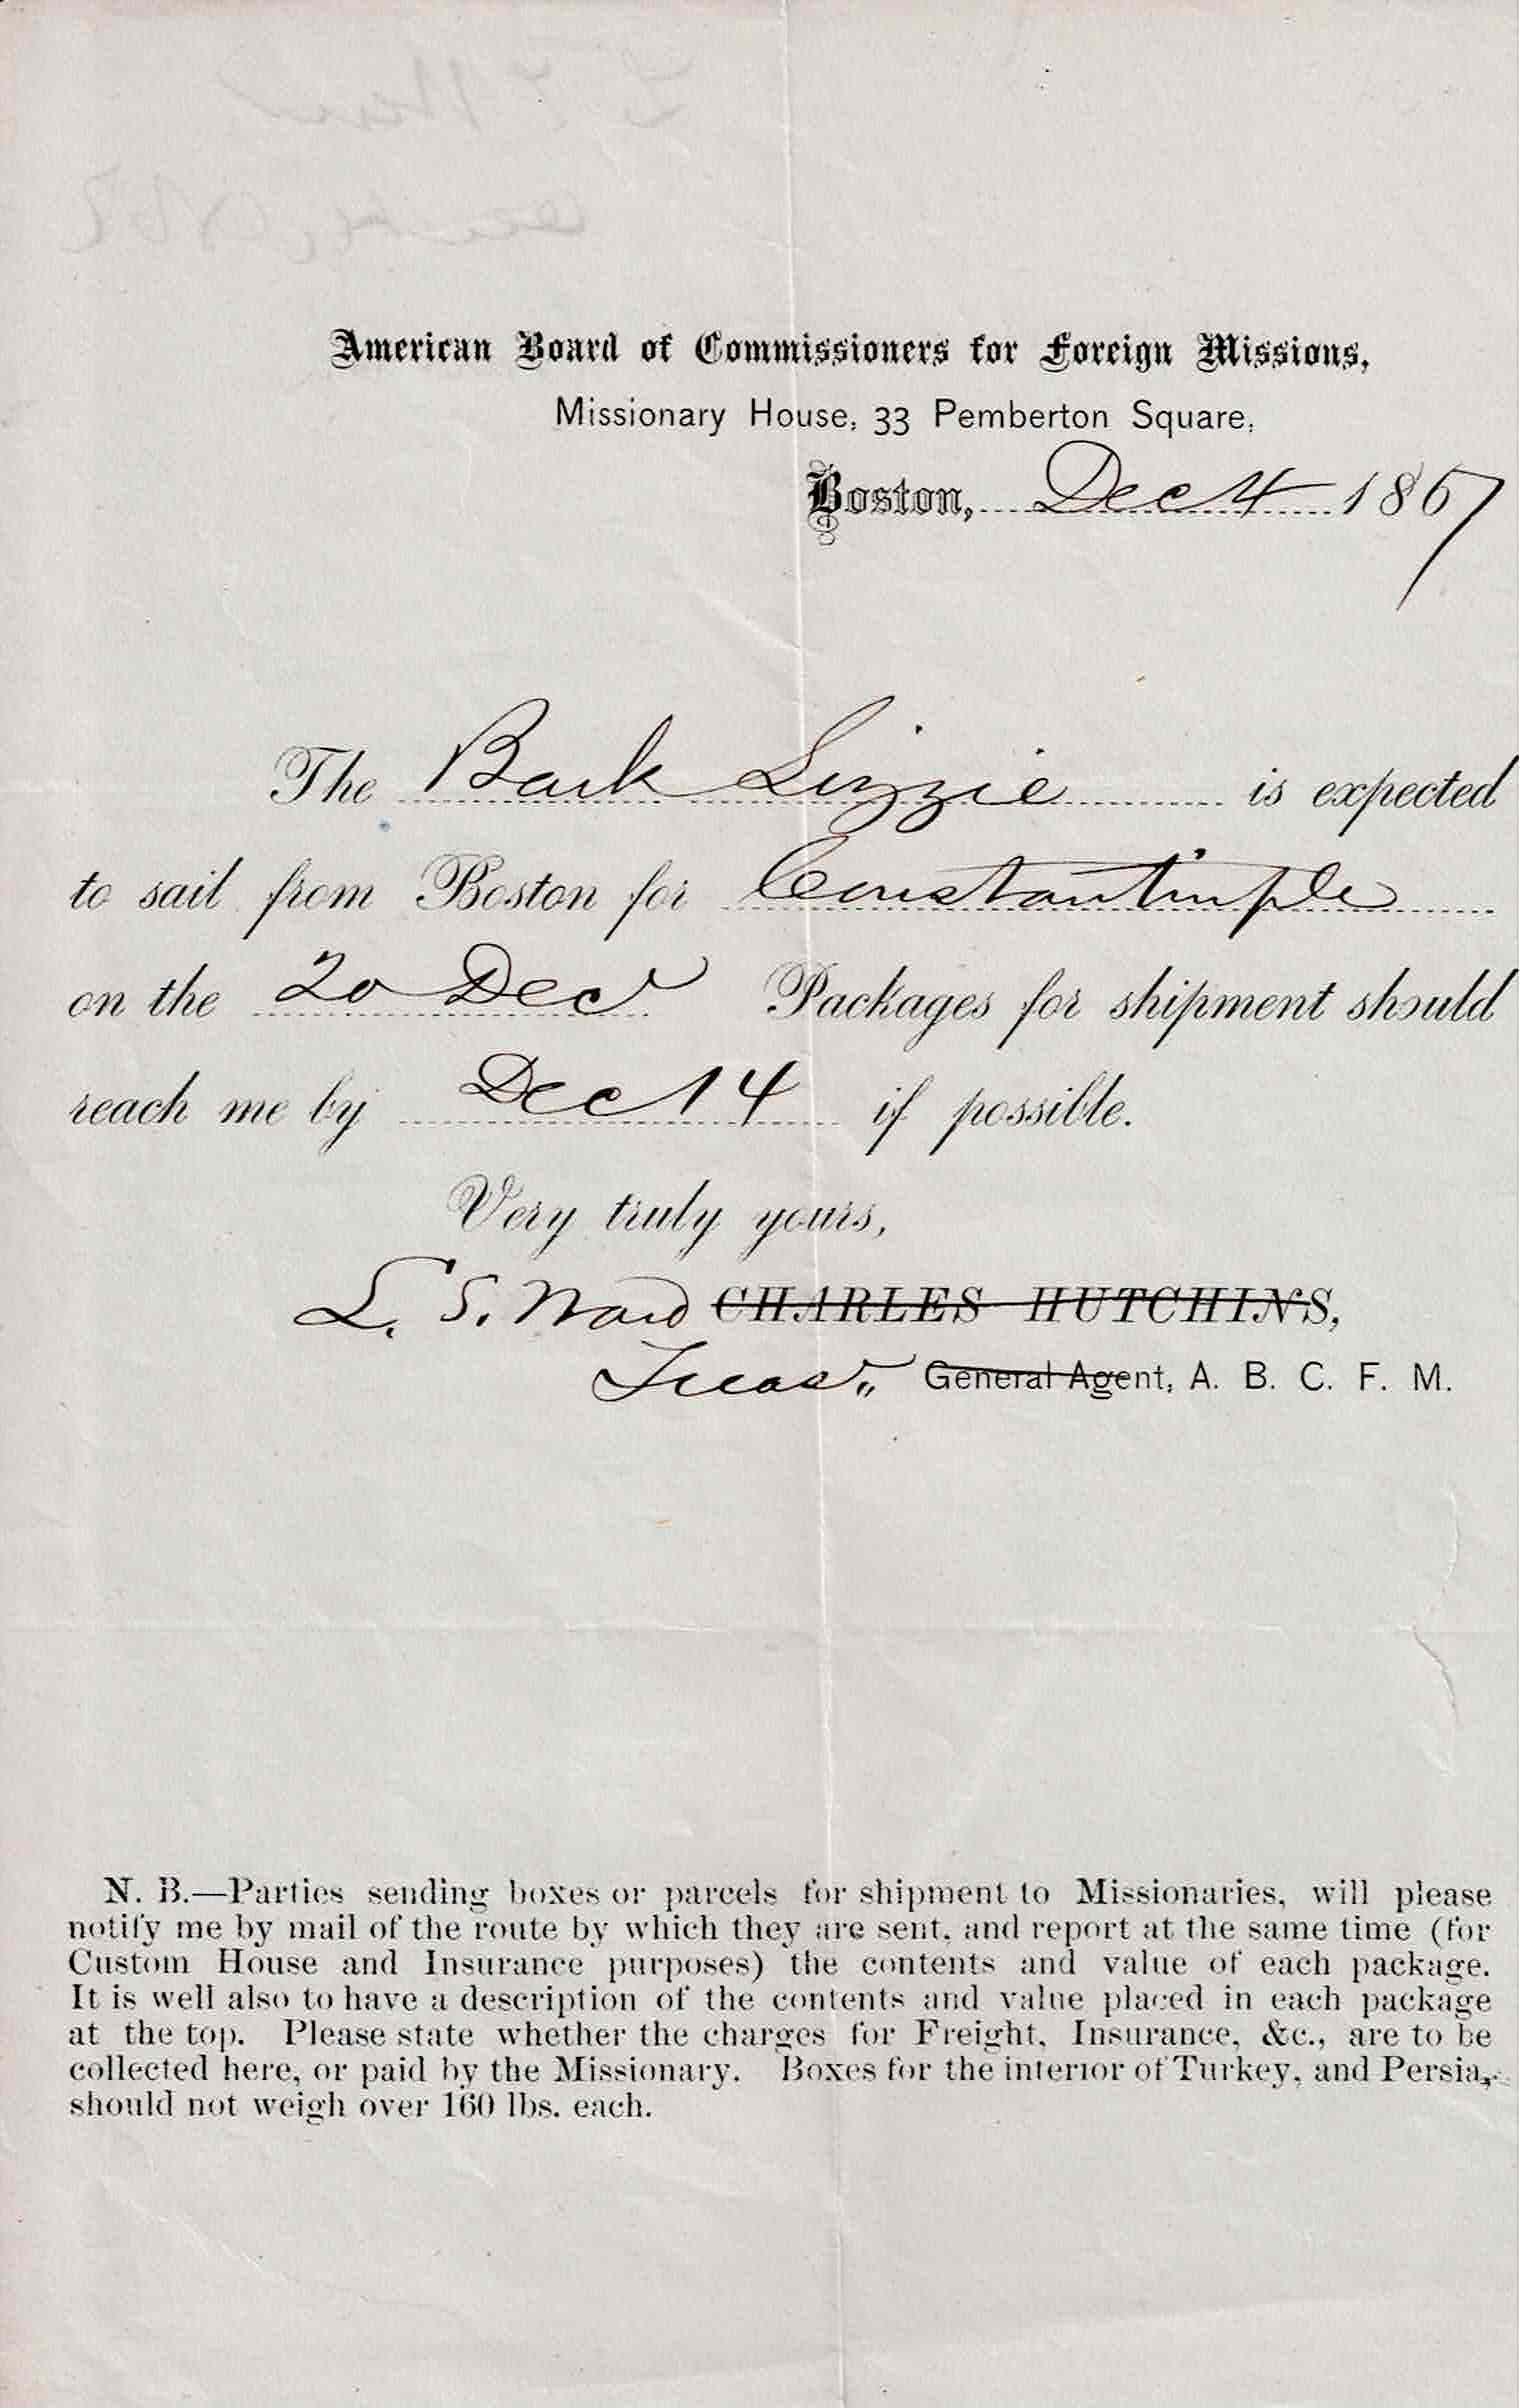 American Board of Commissioners for Foreign Missions,
Missionary House, 33 Pemberton Square,
Boston, Dec 4 1867
The Bark Lizzie is expected
to sail from Boston for Constantinple
on the 20 Decr Packages for shipment should
reach me by Dec 14 if possible.
Very truly yours,
L. S. Ward CHARLES HUTCHINS,
Treasr, General Agent, A. B. C. F. M.
N. B.—Parties sending boxes or parcels for shipment to Missionaries, will please
notify me by mail of the route by which they are sent, and report at the same time (for
Custom House and Insurance purposes) the contents and value of each package.
It is well also to have a description of the contents and value placed in each package
at the top. Please state whether the charges for Freight, Insurance, &c., are to be
collected here, or paid by the Missionary. Boxes for the interior of Turkey, and Persia,
should not weigh over 160 lbs. each.